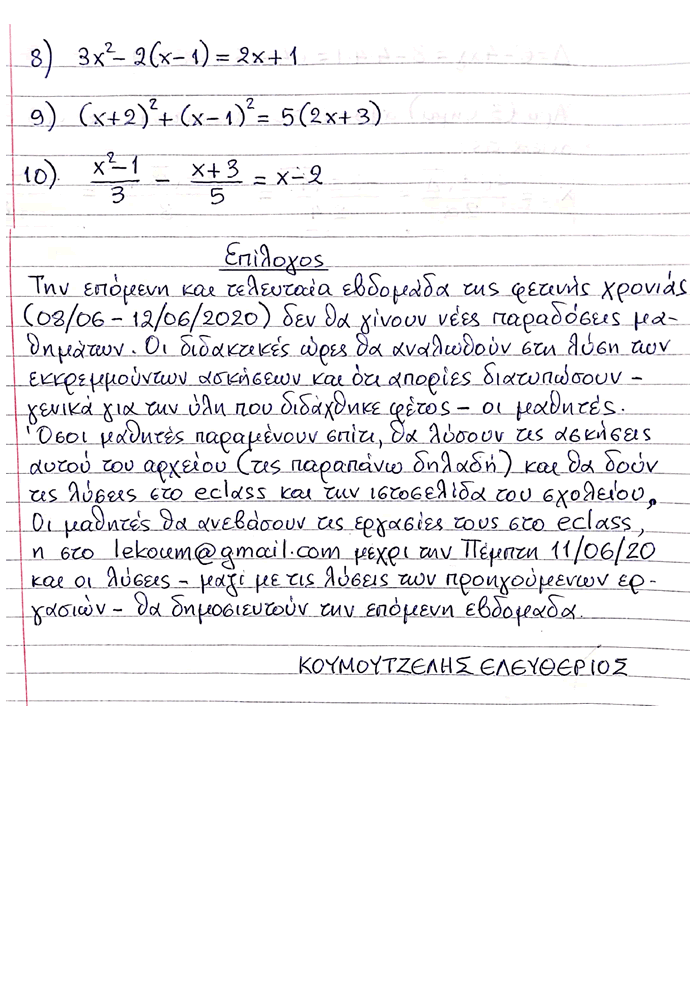 8) 3x²-2(x-1)=2x+1
9) (x+2)²+(x-1)²=5(2x+3)
10) (x²-1)/3 - (x+3)/5 = x-2
Επίλογος
Την επόμενη και τελευταία εβδομάδα της φετινής χρονιάς
(08/06-12/06/2020) δεν θα γίνουν νέες παραδόσεις μα-
θημάτων. Οι διδακτικές ώρες θα αναλωθούν στη λύση των
εκκρεμμούντων ασκήσεων και ότι απορίες διατυπώσουν -
γενικά για την ύλη που διδάχθηκε φέτος - οι μαθητές.
Όσοι μαθητές παραμένουν σπίτι, θα λύσουν τις ασκήσεις
αυτού του αρχείου (τις παραπάνω δηλαδή) και θα δούν
τις λύσεις στο eclass και την ιστοσελίδα του σχολείου.
Οι μαθητές θα ανεβάσουν τις εργασίες τους στο eclass,
η στο lekoum@gmail.com μεχρι την Πέμπτη 11/06/20
και οι λύσεις - μαζί με τις λύσεις των προηγούμενων ερ-
γασιών - θα δημοσιευτούν την επόμενη εβδομαδα.
ΚΟΥΜΟΥΤΖΕΛΗΣ ΕΛΕΥΘΕΡΙΟΣ